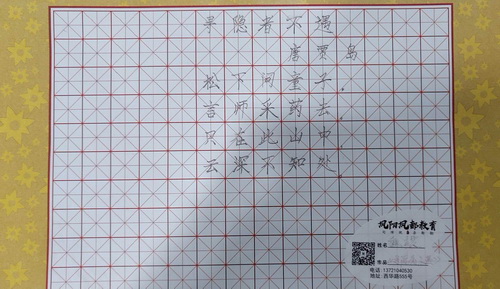 寻隐者不遇
唐 贾岛
松下问童子，
言师采药去。
只在此山中，
云深不知处。
凤阳凤都教育
姓名
作品
电话：13721040530
地址：西华路555号